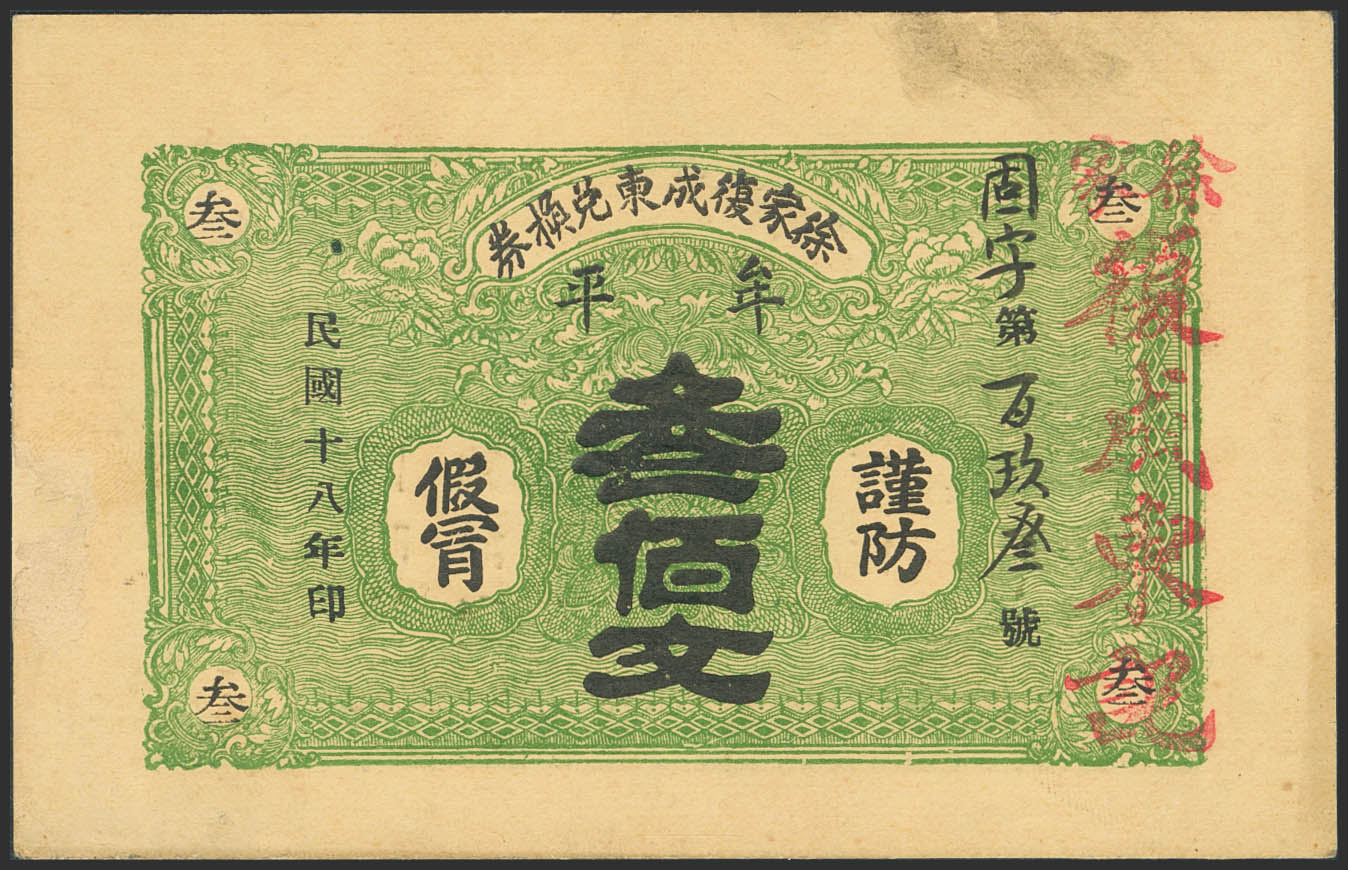 徐家復成東兌換券
牟平
叁
叁
叁
叁
固字第百玖叁號
謹防
叁佰文
假冒
民國十八年印
徐家
復成東記